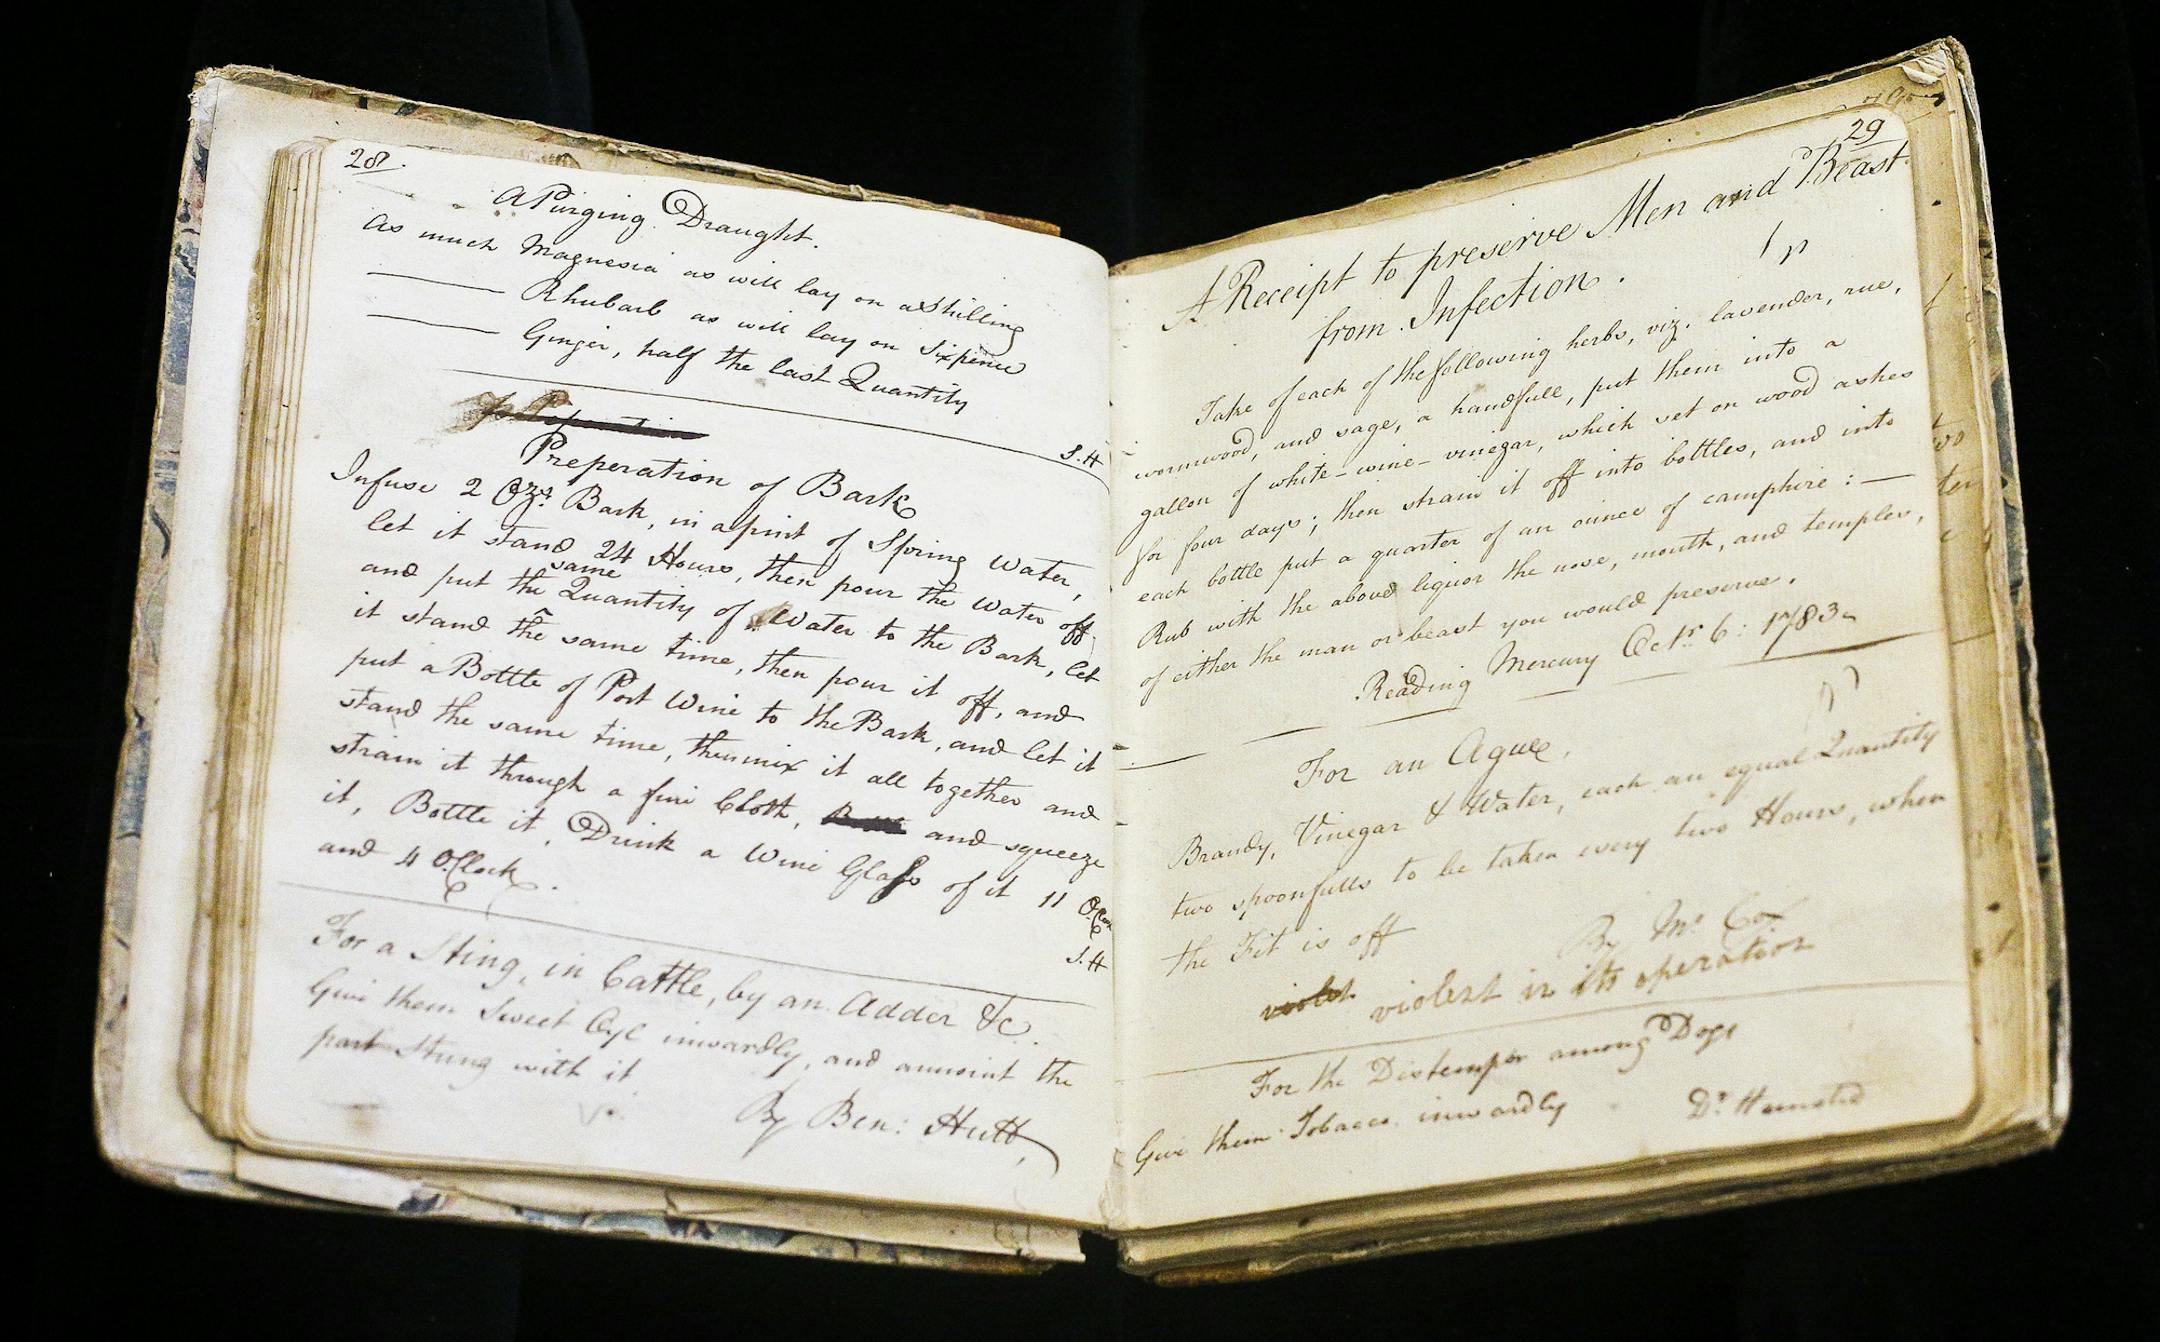 28.
A Purging Draught.
As much Magnesia as will lay on a Shilling
Rhubarb as will lay on Sixpence
Ginger, half the last Quantity
S.H
Preperation of Bark
Infuse 2 Ozs. Bark, in a pint of Spring Water,
let it stand 24 Hours, then pour the Water off
and put the same Quantity of Water to the Bark, let
it stand the same time, then pour it off, and
put a Bottle of Port Wine to the Bark, and let it
stand the same time, then mix it all together and
strain it through a fine Cloth, and squeeze
it, Bottle it, Drink a Wine Glass of it 11 O.Clock
and 4 O.Clock.
S.H
For a Sting, in Cattle, by an Adder &c.
Give them Sweet Oyl inwardly, and annoint the
part Stung with it
By Ben: Hutt,
29
A Receipt to preserve Men and Beast
from Infection.
Take of each of the following herbs, viz. lavender, rue,
wormwood, and sage, a handfull, put them into a
gallon of white-wine-vinegar, which set on wood ashes
for four days; then strain it off into bottles, and into
each bottle put a quarter of an ounce of camphire:—
Rub with the above liquor the nose, mouth, and temples,
of either the man or beast you would preserve.
Reading Mercury Octr. 6: 1783
For an Ague.
Brandy, Vinegar & Water, each an equal Quantity
two spoonfulls to be taken every two Hours, when
the Fit is off
By Mr. Cox
violet violent in its operation
For the Distemper among Dogs
Give them Tobacco inwardly Dr.